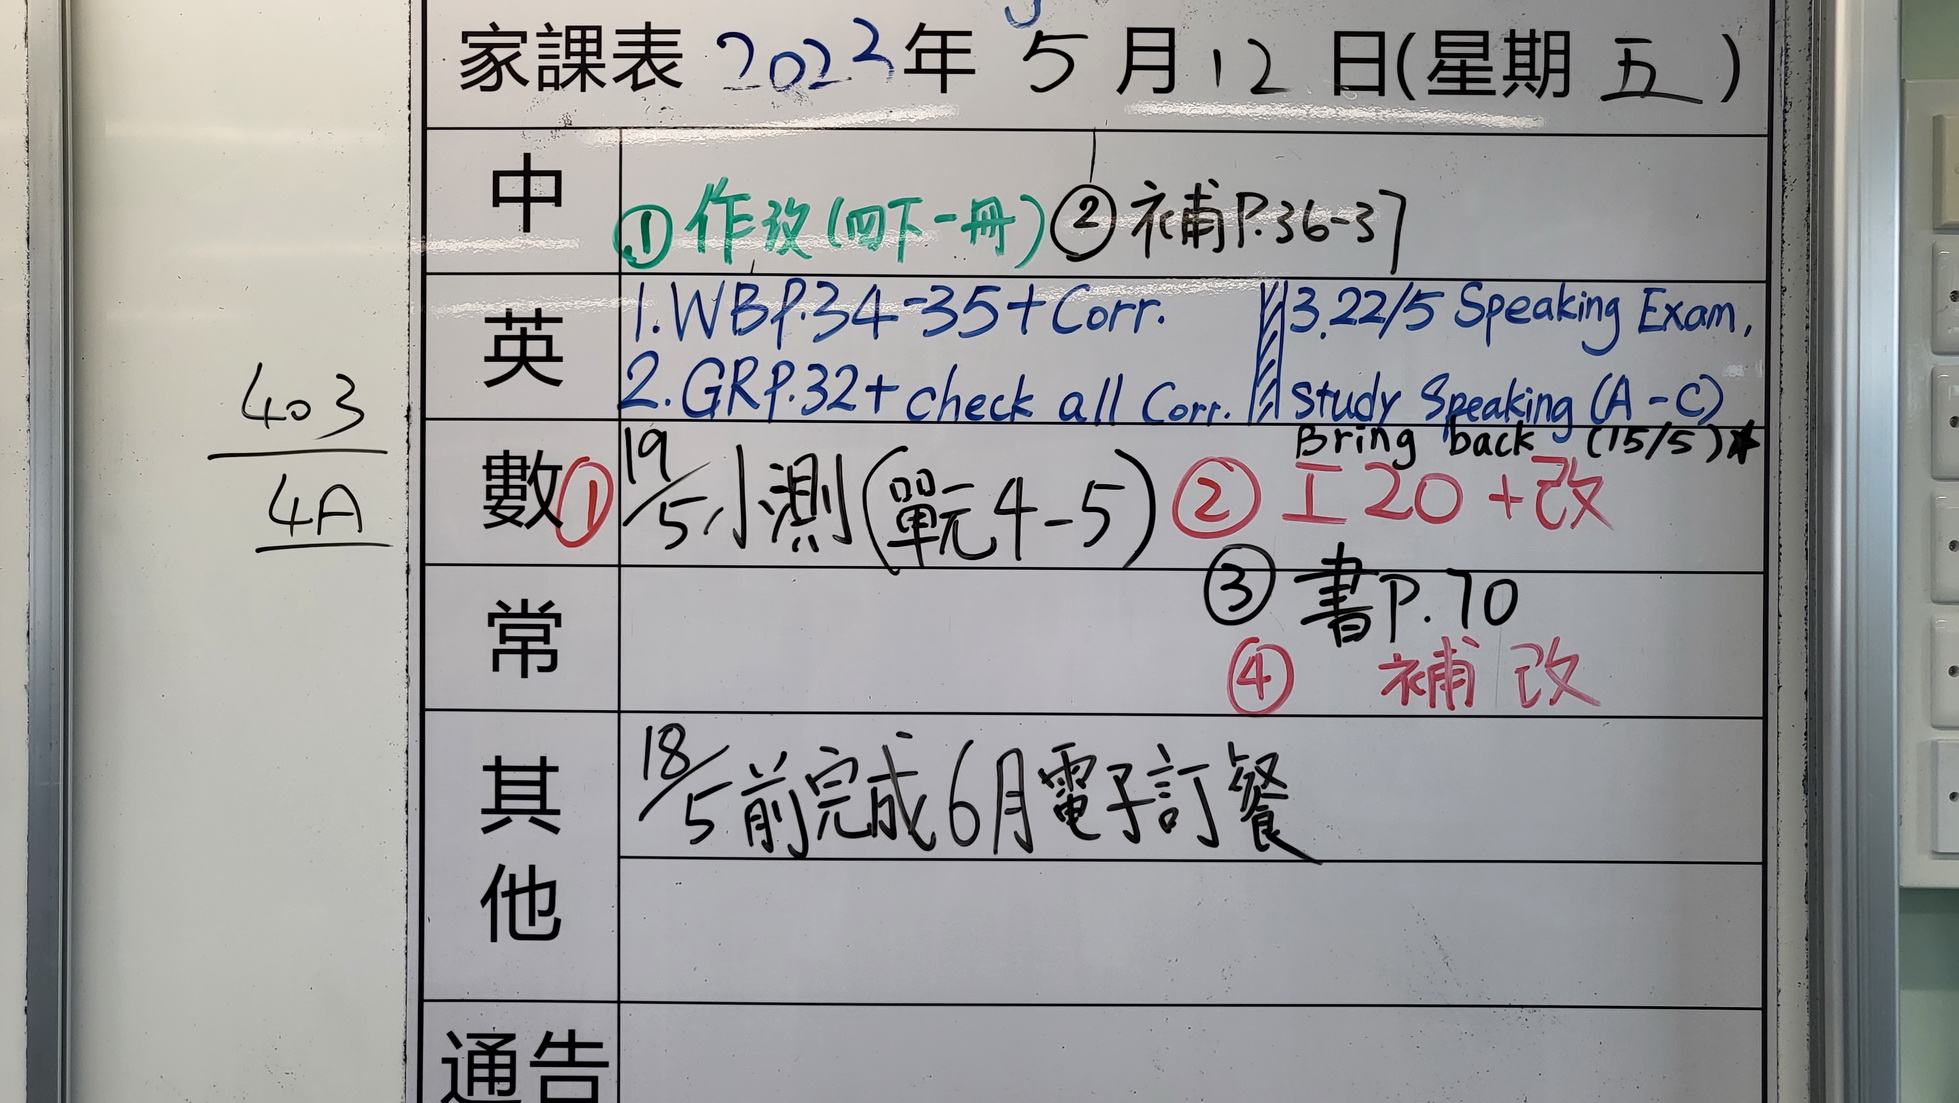 家課表 2023年 5月12日(星期五)
中
①作改(四下一冊) ②補P.36-37
英
1.WBP.34-35+Corr.
2.GRP.32+check all Corr.
3.22/5 Speaking Exam,
Study Speaking (A-C)
Bring back (15/5)*
數
① 19/5小測(單元4-5) ② 工20+改
③ 書P.70
常
④ 補改
其他
18/5前完成6月電子訂餐
通告
403
4A